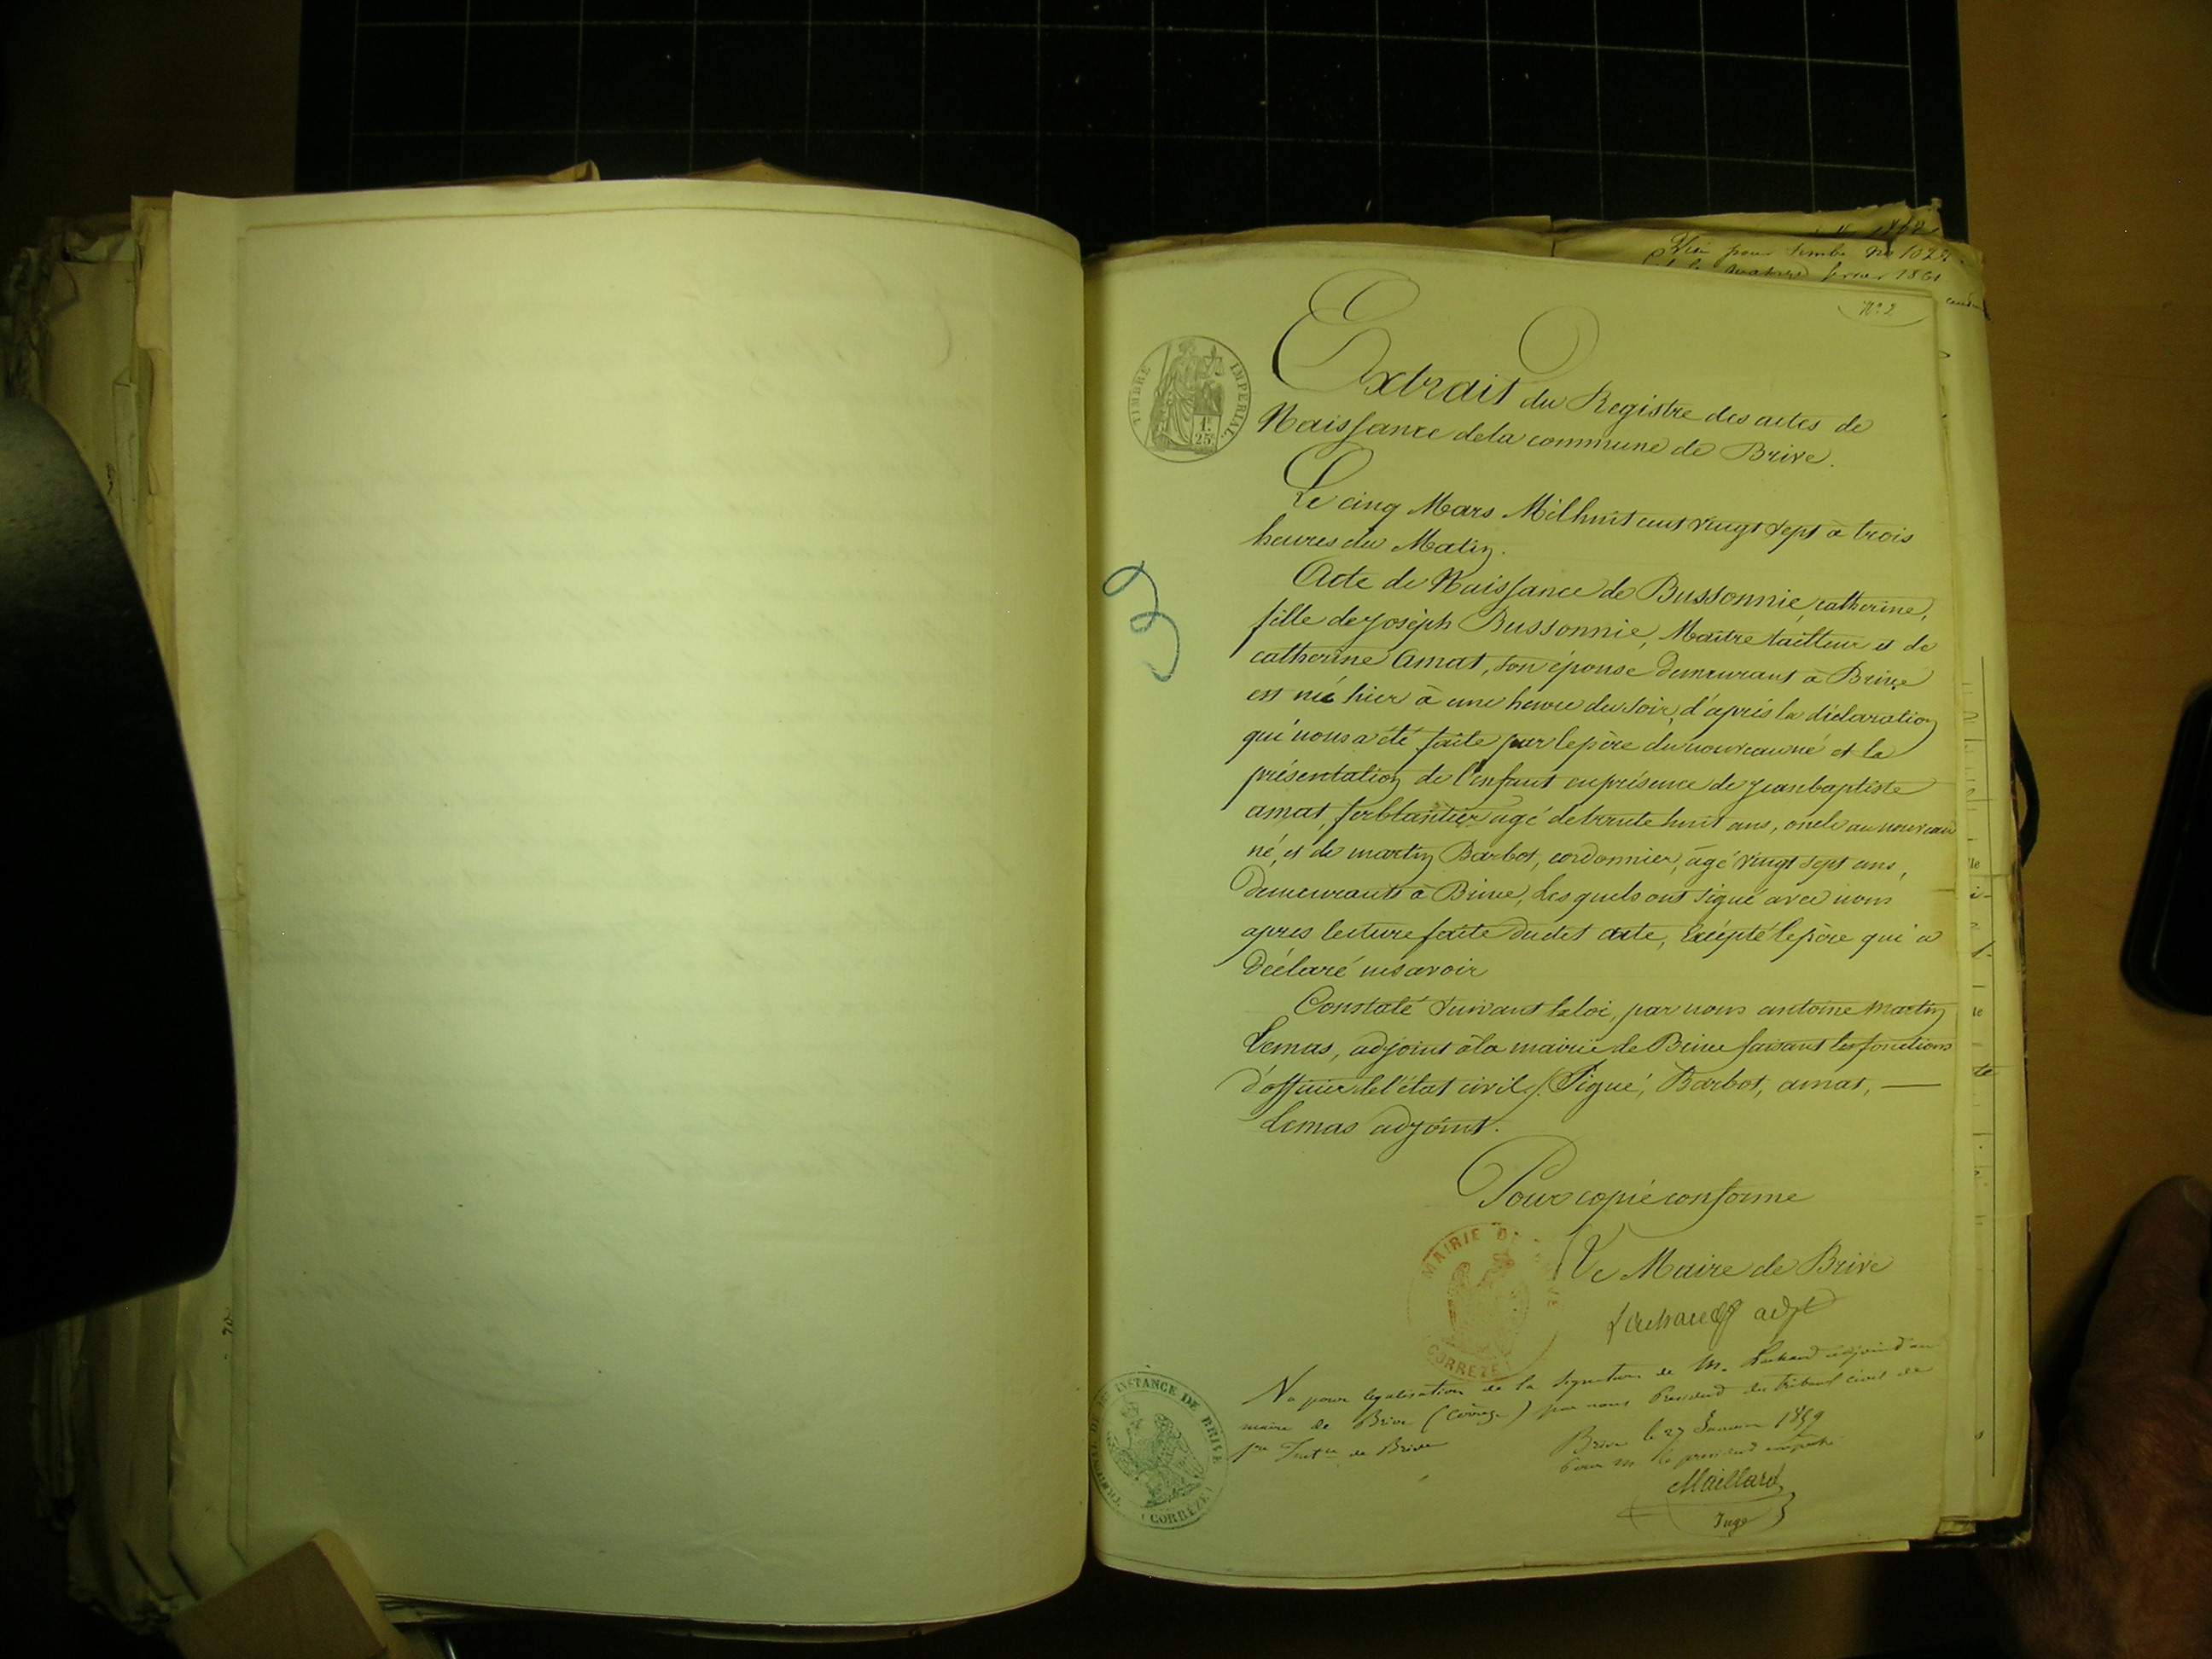 Vu pour timbre no 102
février 1861
No 2
TIMBRE IMPÉRIAL
1f 25c
Extrait du Registre des actes de
Naissance dela commune de Brive.
Le cinq Mars Mil huit cent vingt sept à trois
heures du Matin.
Acte de Naissance de Bussonnie, catherine,
fille de joseph Bussonnie, Maître tailleur et de
catherine Amat, son épouse demeurant à Brive
est née hier à une heure du soir, d'après la déclaration
qui nous a été faite par le père du nouveau né et la
présentation de l'enfant en présence de jean baptiste
amat, ferblantier agé de trente huit ans, oncle au nouveau
né, et de martin Barbot, cordonnier, âgé vingt sept ans,
demeurants à Brive, Lesquels ont signé avec nous
apres lecture faite dudit acte, Excepté le père qui a
déclaré ne savoir
Constaté suivant la loi, par nous antoine martin
Lemas, adjoint à la mairie de Brive faisant les fonctions
d'officier de l'état civil. Signé, Barbot, amat, —
Lemas adjoint.
Pour copie conforme
Le Maire de Brive
Lachaud adjt
MAIRIE DE BRIVE
CORREZE
Vu pour légalisation de la signature de M. Lachaud adjoint au
maire de Brive (Corrèze) par nous Président du tribunal civil de
1re Instce de Brive
Brive le 27 Janvier 1859
Pour M. le président empêché
Maillard
Juge
TRIBUNAL DE 1RE INSTANCE DE BRIVE
(CORREZE)